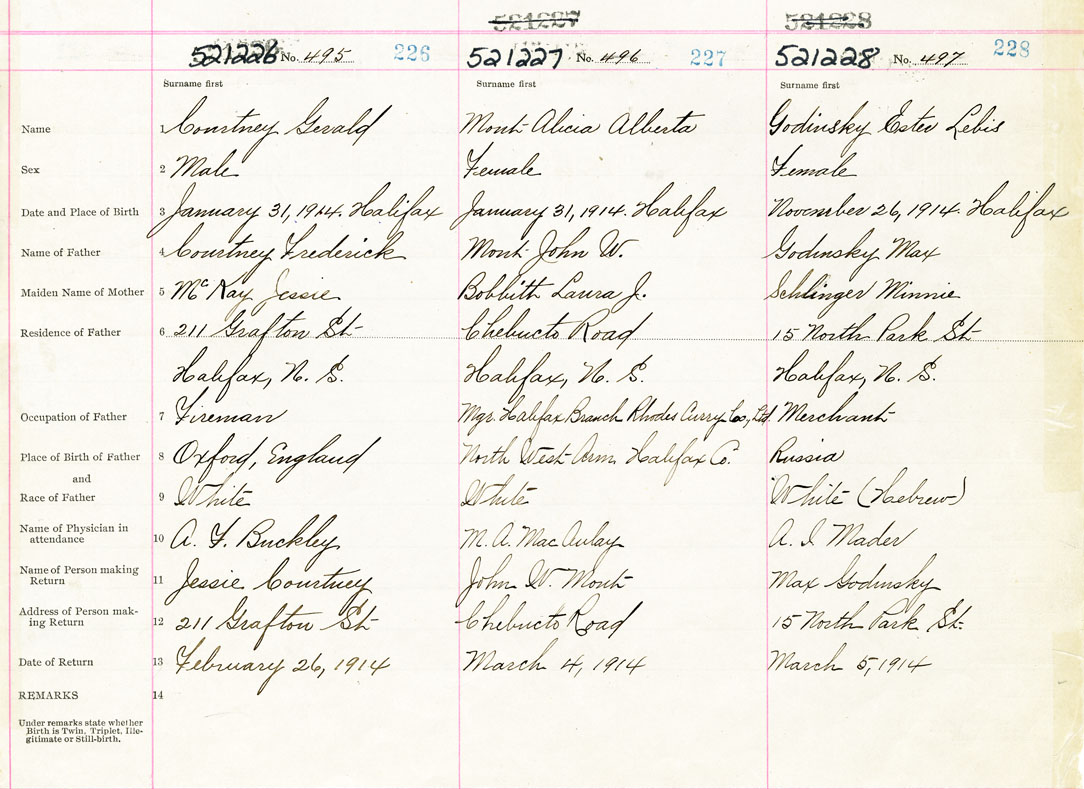 521227 521228
521226 No. 495 226 521227 No. 496 227 521228 No. 497 228
Surname first Surname first Surname first
Name 1 Courtney Gerald Mont Alicia Alberta Godinsky Ester Lebis
Sex 2 Male Female Female
Date and Place of Birth 3 January 31, 1914. Halifax January 31, 1914. Halifax November 26, 1914. Halifax
Name of Father 4 Courtney Frederick Mont John W. Godinsky Max
Maiden Name of Mother 5 McKay Jessie Bobbith Laura J. Schlinger Minnie
Residence of Father 6 211 Grafton St Chebucto Road 15 North Park St
Halifax, N. S. Halifax, N. S. Halifax, N. S.
Occupation of Father 7 Fireman Mgr. Halifax Branch Rhodes Curry Co., Ltd. Merchant
Place of Birth of Father 8 Oxford, England North West Arm Halifax Co. Russia
and
Race of Father 9 White White White (Hebrew)
Name of Physician in
attendance 10 A. F. Buckley M. A. MacAulay A. I Mader
Name of Person making
Return 11 Jessie Courtney John W. Mont Max Godinsky
Address of Person mak-
ing Return 12 211 Grafton St Chebucto Road 15 North Park St.
Date of Return 13 February 26, 1914 March 4, 1914 March 5, 1914
REMARKS 14
Under remarks state whether
Birth is Twin, Triplet, Ille-
gitimate or Still-birth.